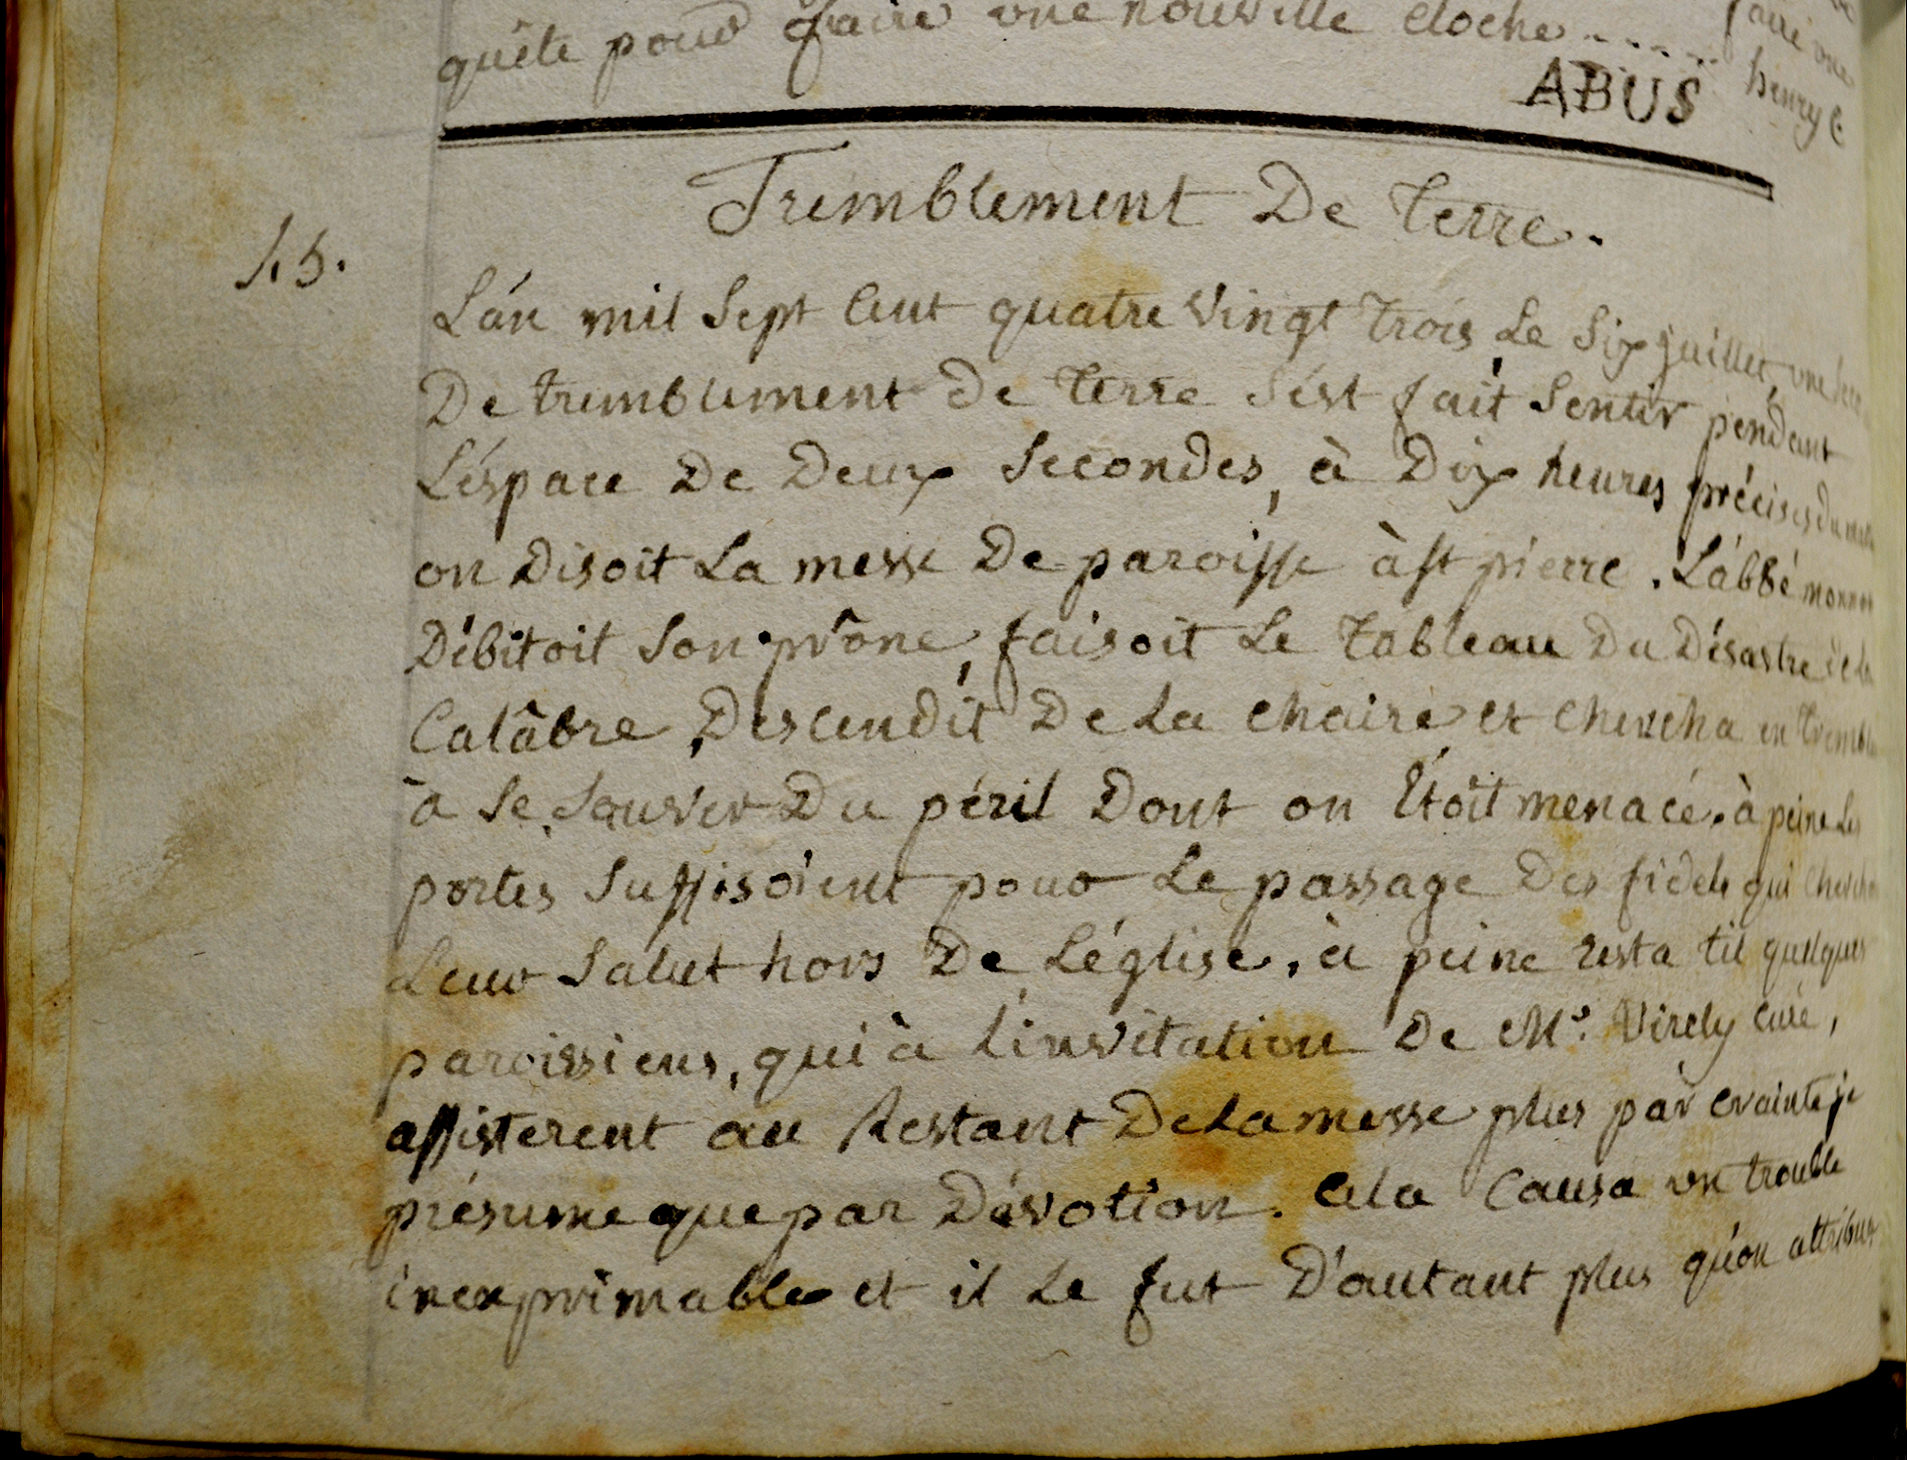 quête pour faire une nouvelle cloche .....
faire une
ABUS
henry
Tremblement De Terre.
15.
L'an mil Sept Cent quatre Vingt Trois Le Six juillet, une
De tremblement De Terre S'est fait Sentir pendant
L'éspace De Deux Secondes, à Dix heures précises du
on Disoit La messe De paroisse à St pierre. L'abbé
Débitoit Son prône, faisoit Le Tableau Du Désastre de la
Calâbre, Descendit De La Chaire et Chercha en
à Se Sauver Du péril Dont on Étoit menacé. à peine Les
portes Suffisoient pour Le passage Des fidels qui
Leur Salut hors De L'église. à peine resta til quelques
paroissiens, qui à L'invitation De Mr. Virely Curé,
assisterent au Restant De La messe plus par crainte je
présume que par Dévotion. Cela Causa un trouble
inexprimable et il Le fut D'autant plus qu'on